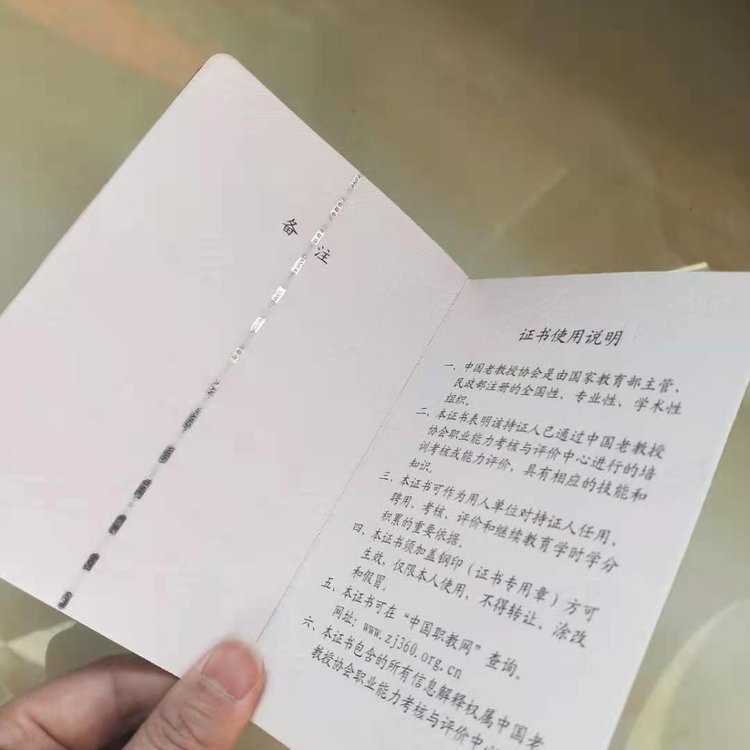 备注
证书使用说明
一、中国老教授协会是由国家教育部主管、
民政部注册的全国性、专业性、学术性
组织。
二、本证书表明该持证人已通过中国老教授
协会职业能力考核与评价中心进行的培
训考核或能力评价，具有相应的技能和
知识。
三、本证书可作为用人单位对持证人任用、
聘用、考核、评价和继续教育学时学分
积累的重要依据。
四、本证书须加盖钢印（证书专用章）方可
生效，仅限本人使用，不得转让、涂改
和假冒。
五、本证书可在“中国职教网”查询。
网址：www.zj360.org.cn
六、本证书包含的所有信息解释权属中国老
教授协会职业能力考核与评价中